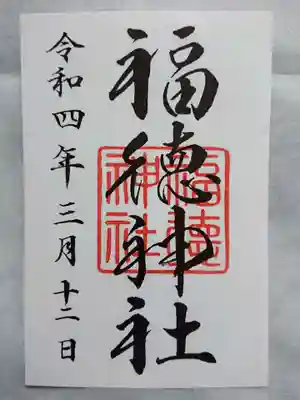 福徳神社
福徳神社
令和四年三月十二日